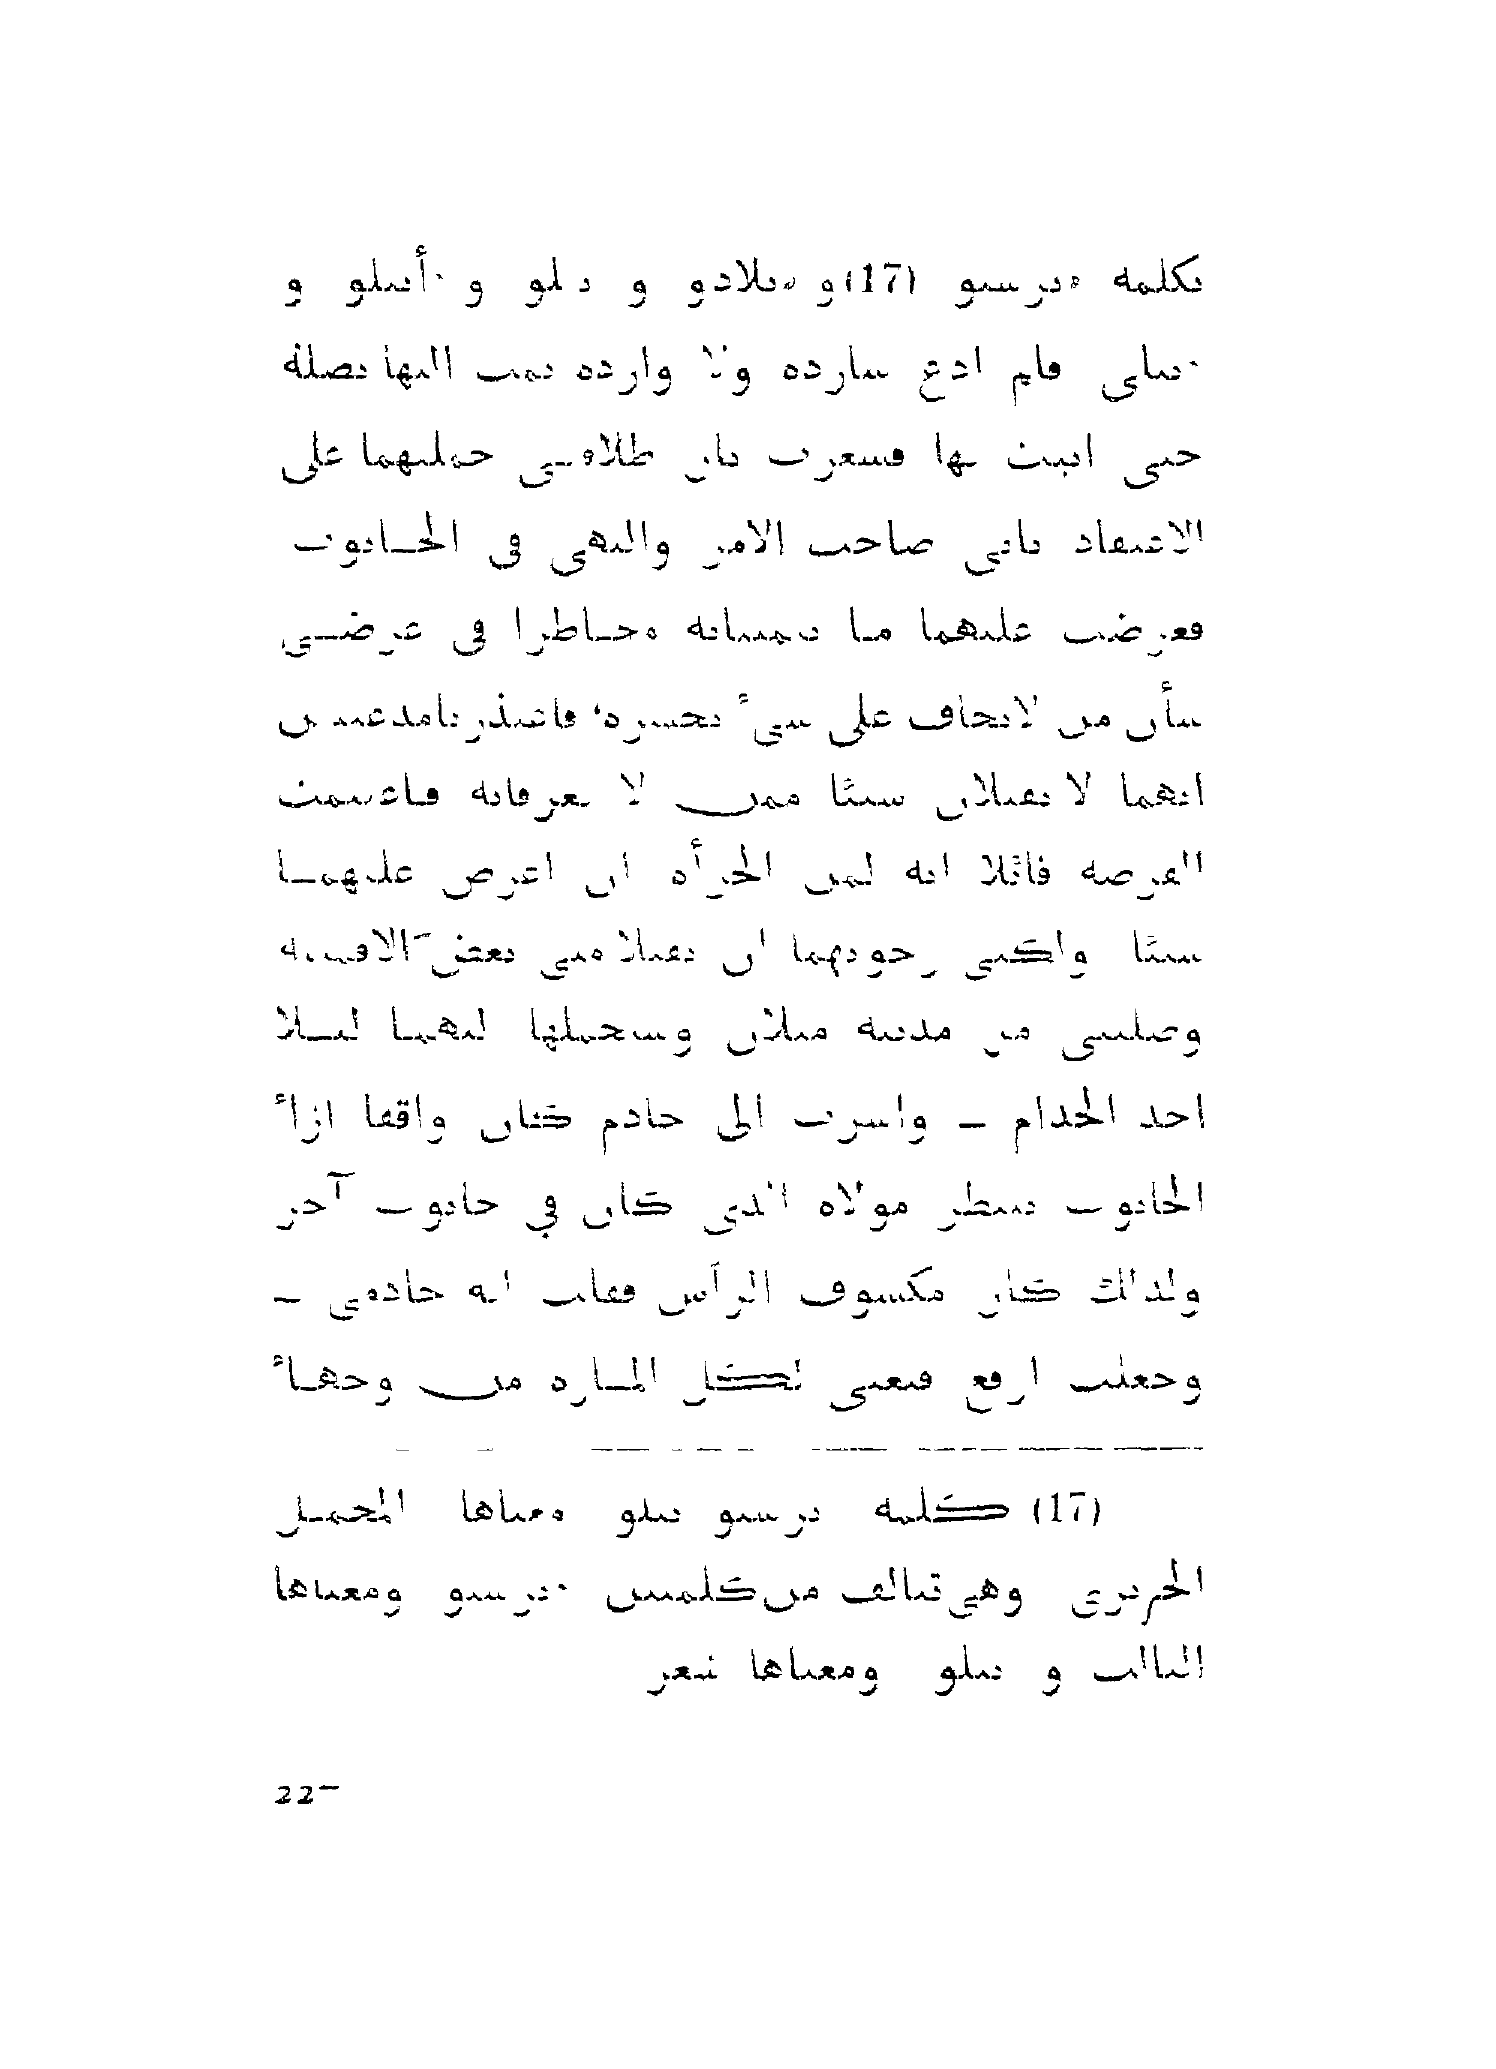 بكلمة ترسو (17) و و و و
فلم ادع شاردة ولا واردة تمت اليها بصلة
حتى اتيت بها فشعرت بان طلاقتي حملتهما على
الاعتقاد باني صاحب الامر والنهي في الحـانوت
فعرضت عليهما مـا مخـاطرا في عرضـي
شأن من لا يخاف على شيء يخسره، فاعتذرتا مدعيتين
انهما لا تقبلان شيئا ممن لا يعرفانه فـاغتنمت
الفرصة قائلا انه لمن الجرأة ان اعرض عليهمـا
شيئا ولكني رجوتهما ان تقبلا مني بعض الاقمشة
وصلتني من مدينة ميلان وسيحملها اليهمـا ليـلا
احد الخدام - واشرت الى خادم كان واقفا ازاء
الحانوت ينتظر مولاه الذي كان في حانوت آخر
ولذلك كان مكشوف الرأس فقلت انه خادمي -
وجعلت ارفع قبعتي لكل المـارة من وجهـاء
(17) كلمة ترسو بيلو معناها المخمـل
الحريري وهي تتالف من كلمتين ترسو ومعناها
الثالث و بيلو ومعناها شعر
22-